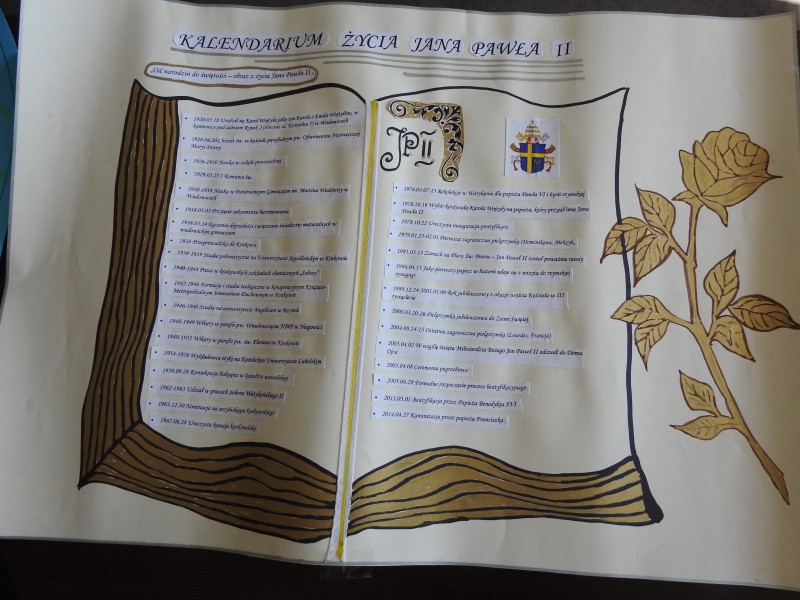 KALENDARIUM ŻYCIA JANA PAWŁA II
„Od narodzin do świętości – obraz z życia Jana Pawła II„
• 1920.05.18 Urodził się Karol Wojtyła jako syn Karola i Emilii Wojtyłów, w
kamienicy pod adresem Rynek 2 (obecnie ul. Kościelna 7) w Wadowicach
• 1920.06.20 Chrzest św. w kościele parafialnym pw. Ofiarowania Najświętszej
Maryi Panny
• 1926-1930 Nauka w szkole powszechnej
• 1929.05.25 I Komunia św.
• 1930-1938 Nauka w Państwowym Gimnazjum im. Marcina Wadowity w
Wadowicach
• 1938.05.03 Przyjęcie sakramentu bierzmowania
• 1938.05.14 Egzamin dojrzałości i wręczenie świadectw maturalnych w
wadowickim gimnazjum
• 1938 Przeprowadzka do Krakowa
• 1938-1939 Studia polonistyczne na Uniwersytecie Jagiellońskim w Krakowie
• 1940-1944 Praca w krakowskich zakładach chemicznych „Solvay"
• 1942-1946 Formacja i studia teologiczne w konspiracyjnym Książęco-
Metropolitalnym Seminarium Duchownym w Krakowie
• 1946-1948 Studia na uniwersytecie Angelicum w Rzymie
• 1948-1949 Wikary w parafii pw. Wniebowzięcia NMP w Niegowici
• 1949-1951 Wikary w parafii pw. św. Floriana w Krakowie
• 1954-1978 Wykładowca etyki na Katolickim Uniwersytecie Lubelskim
• 1958.09.28 Konsekracja biskupia w katedrze wawelskiej
• 1962-1965 Udział w pracach Soboru Watykańskiego II
• 1963.12.30 Nominacja na arcybiskupa krakowskiego
• 1967.06.28 Uroczysta kreacja kardynalska
JPII
• 1976.03.07-13 Rekolekcje w Watykanie dla papieża Pawła VI i kurii rzymskiej
• 1978.10.16 Wybór kardynała Karola Wojtyły na papieża, który przyjął imię Jana
Pawła II
• 1978.10.22 Uroczysta inauguracja pontyfikatu
• 1979.01.25-02.01 Pierwsza zagraniczna pielgrzymka (Dominikana, Meksyk)
• 1981.05.13 Zamach na Placu Św. Piotra – Jan Paweł II został poważnie ranny
• 1986.04.13 Jako pierwszy papież w historii udaje się z wizytą do rzymskiej
synagogi
• 1999.12.24-2001.01.06 Rok jubileuszowy z okazji wejścia Kościoła w III
tysiąclecie
• 2000.03.20-26 Pielgrzymka jubileuszowa do Ziemi Świętej
• 2004.08.14-15 Ostatnia zagraniczna pielgrzymka (Lourdes, Francja)
• 2005.04.02 W wigilię święta Miłosierdzia Bożego Jan Paweł II odszedł do Domu
Ojca
• 2005.04.08 Ceremonia pogrzebowa
• 2005.06.28 Formalne rozpoczęcie procesu beatyfikacyjnego
• 2011.05.01 Beatyfikacja przez Papieża Benedykta XVI
• 2014.04.27 Kanonizacja przez papieża Franciszka